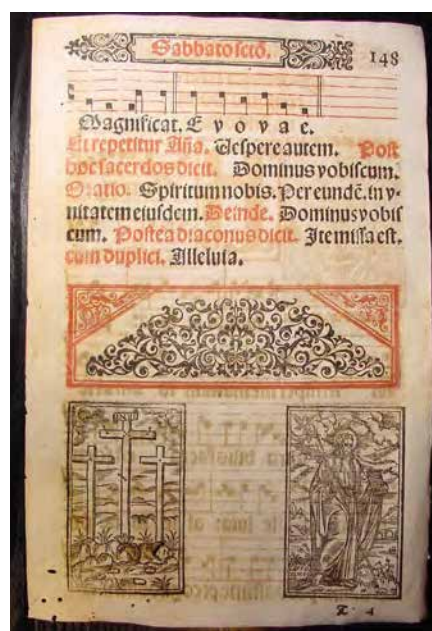 Sabbato sctō.
148
Magnificat. E v o v a e.
Et repetitur Aña. Vespere autem. Post
hoc sacerdos dicit. Dominus vobiscum.
Oratio. Spiritum nobis. Per eundē. in v-
nitate eiusdem. Deinde. Dominus vobis
cum. Postea diaconus dicit. Ite missa est.
cum duplici. Alleluia.